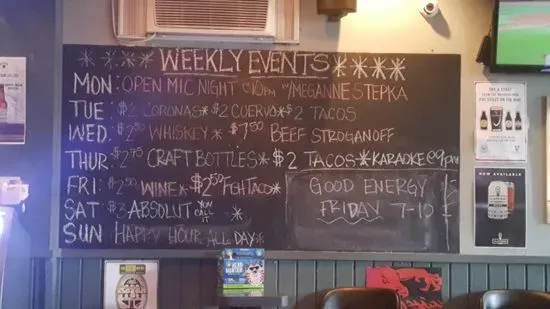 WEEKLY EVENTS
MON: OPEN MIC NIGHT @10PM W/MEGANNE STEPKA
TUE: $2 CORONAS * $2 CUERVO * $2 TACOS
WED: $2.50 WHISKEY * $7.50 BEEF STROGANOFF
THUR: $2.75 CRAFT BOTTLES * $2 TACOS * KARAOKE @ 9PM
FRI: $2.50 WINE * $2.50 FISH TACO *
SAT: $3 ABSOLUT YOU CALL IT *
SUN HAPPY HOUR ALL DAY *
GOOD ENERGY
FRIDAY 7-10
NOW AVAILABLE